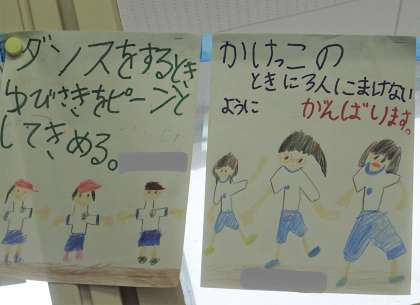 ダンスをするとき
ゆびさきをピーンと
してきめる。
かけっこの
ときに3人にまけない
ように がんばります。